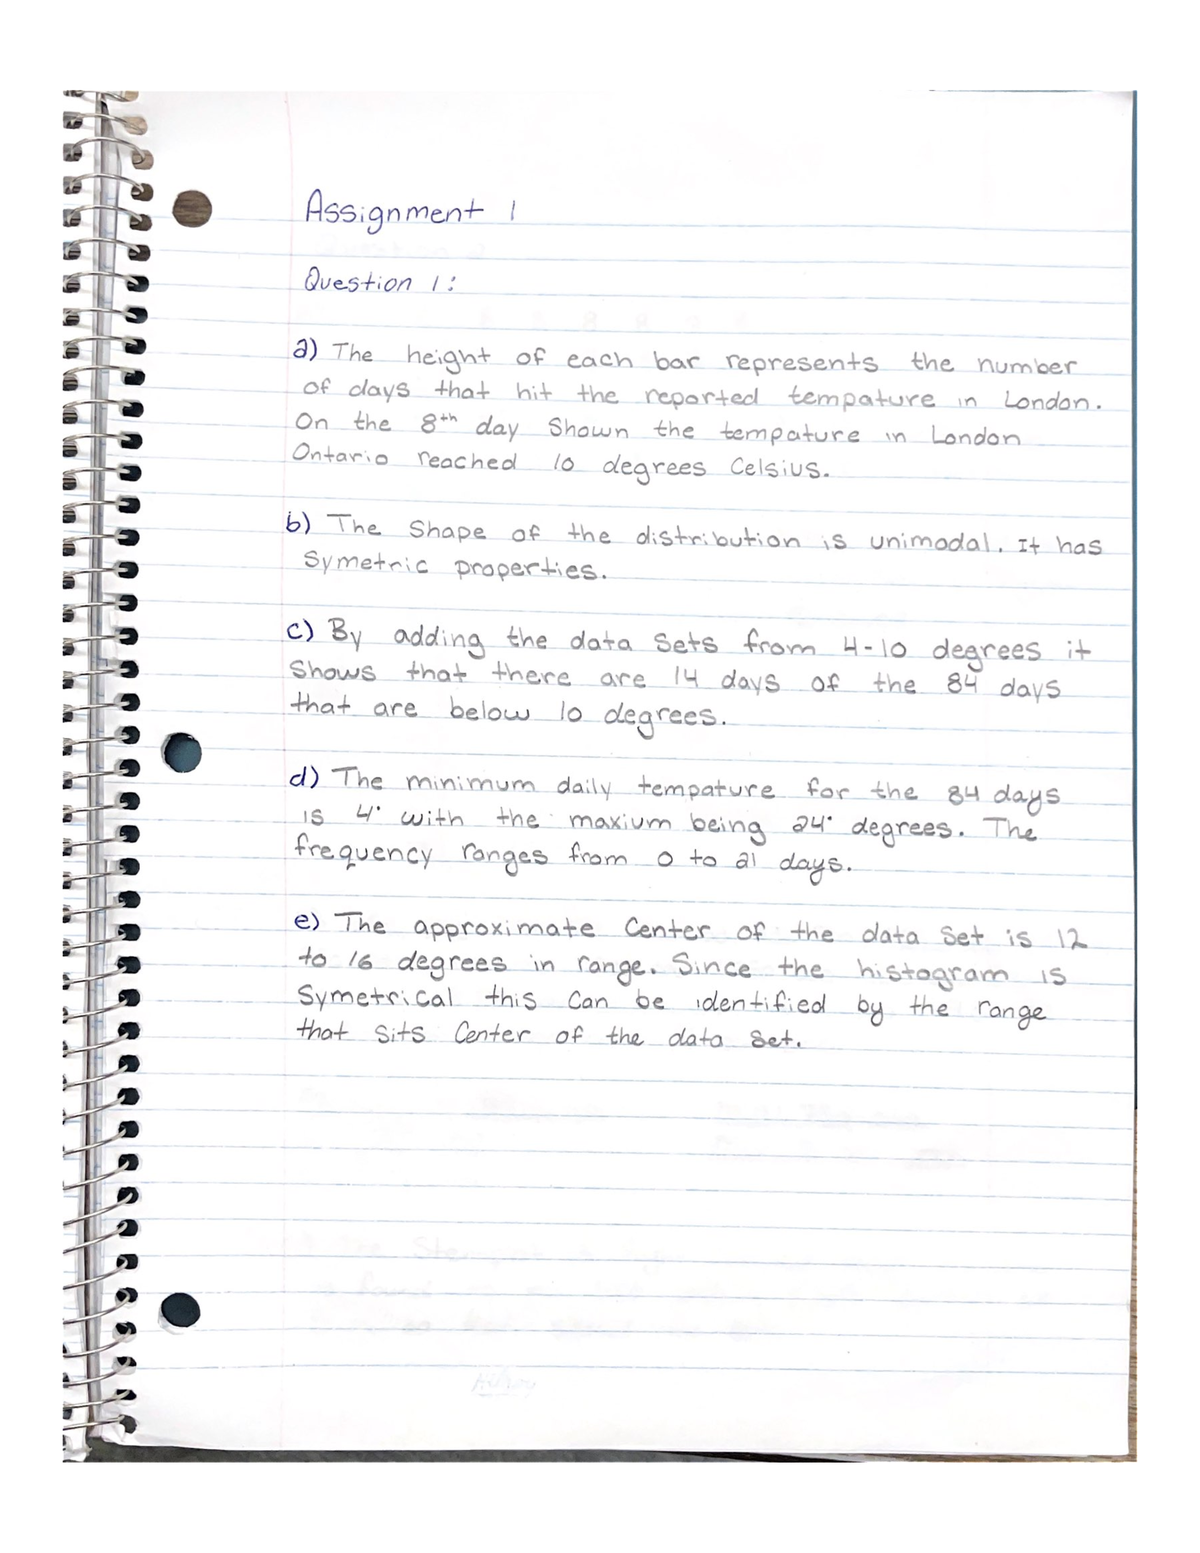 Assignment 1
Question 1:
a) The height of each bar represents the number
of days that hit the reported tempature in London.
On the 8th day Shown the tempature in London
Ontario reached 10 degrees Celsius.
b) The Shape of the distribution is unimodal. It has
Symetric properties.
c) By adding the data Sets from 4-10 degrees it
Shows that there are 14 days of the 84 days
that are below 10 degrees.
d) The minimum daily tempature for the 84 days
is 4° with the maxium being 24° degrees. The
frequency ranges from 0 to 21 days.
e) The approximate Center of the data Set is 12
to 16 degrees in range. Since the histogram is
Symetrical this Can be identified by the range
that Sits Center of the data Set.